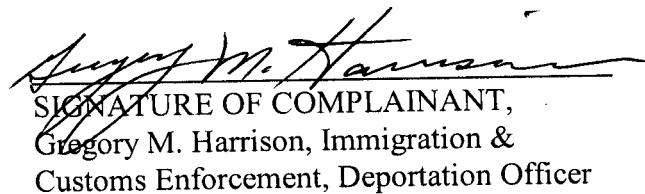 Gregory M. Harrison
SIGNATURE OF COMPLAINANT,
Gregory M. Harrison, Immigration &
Customs Enforcement, Deportation Officer